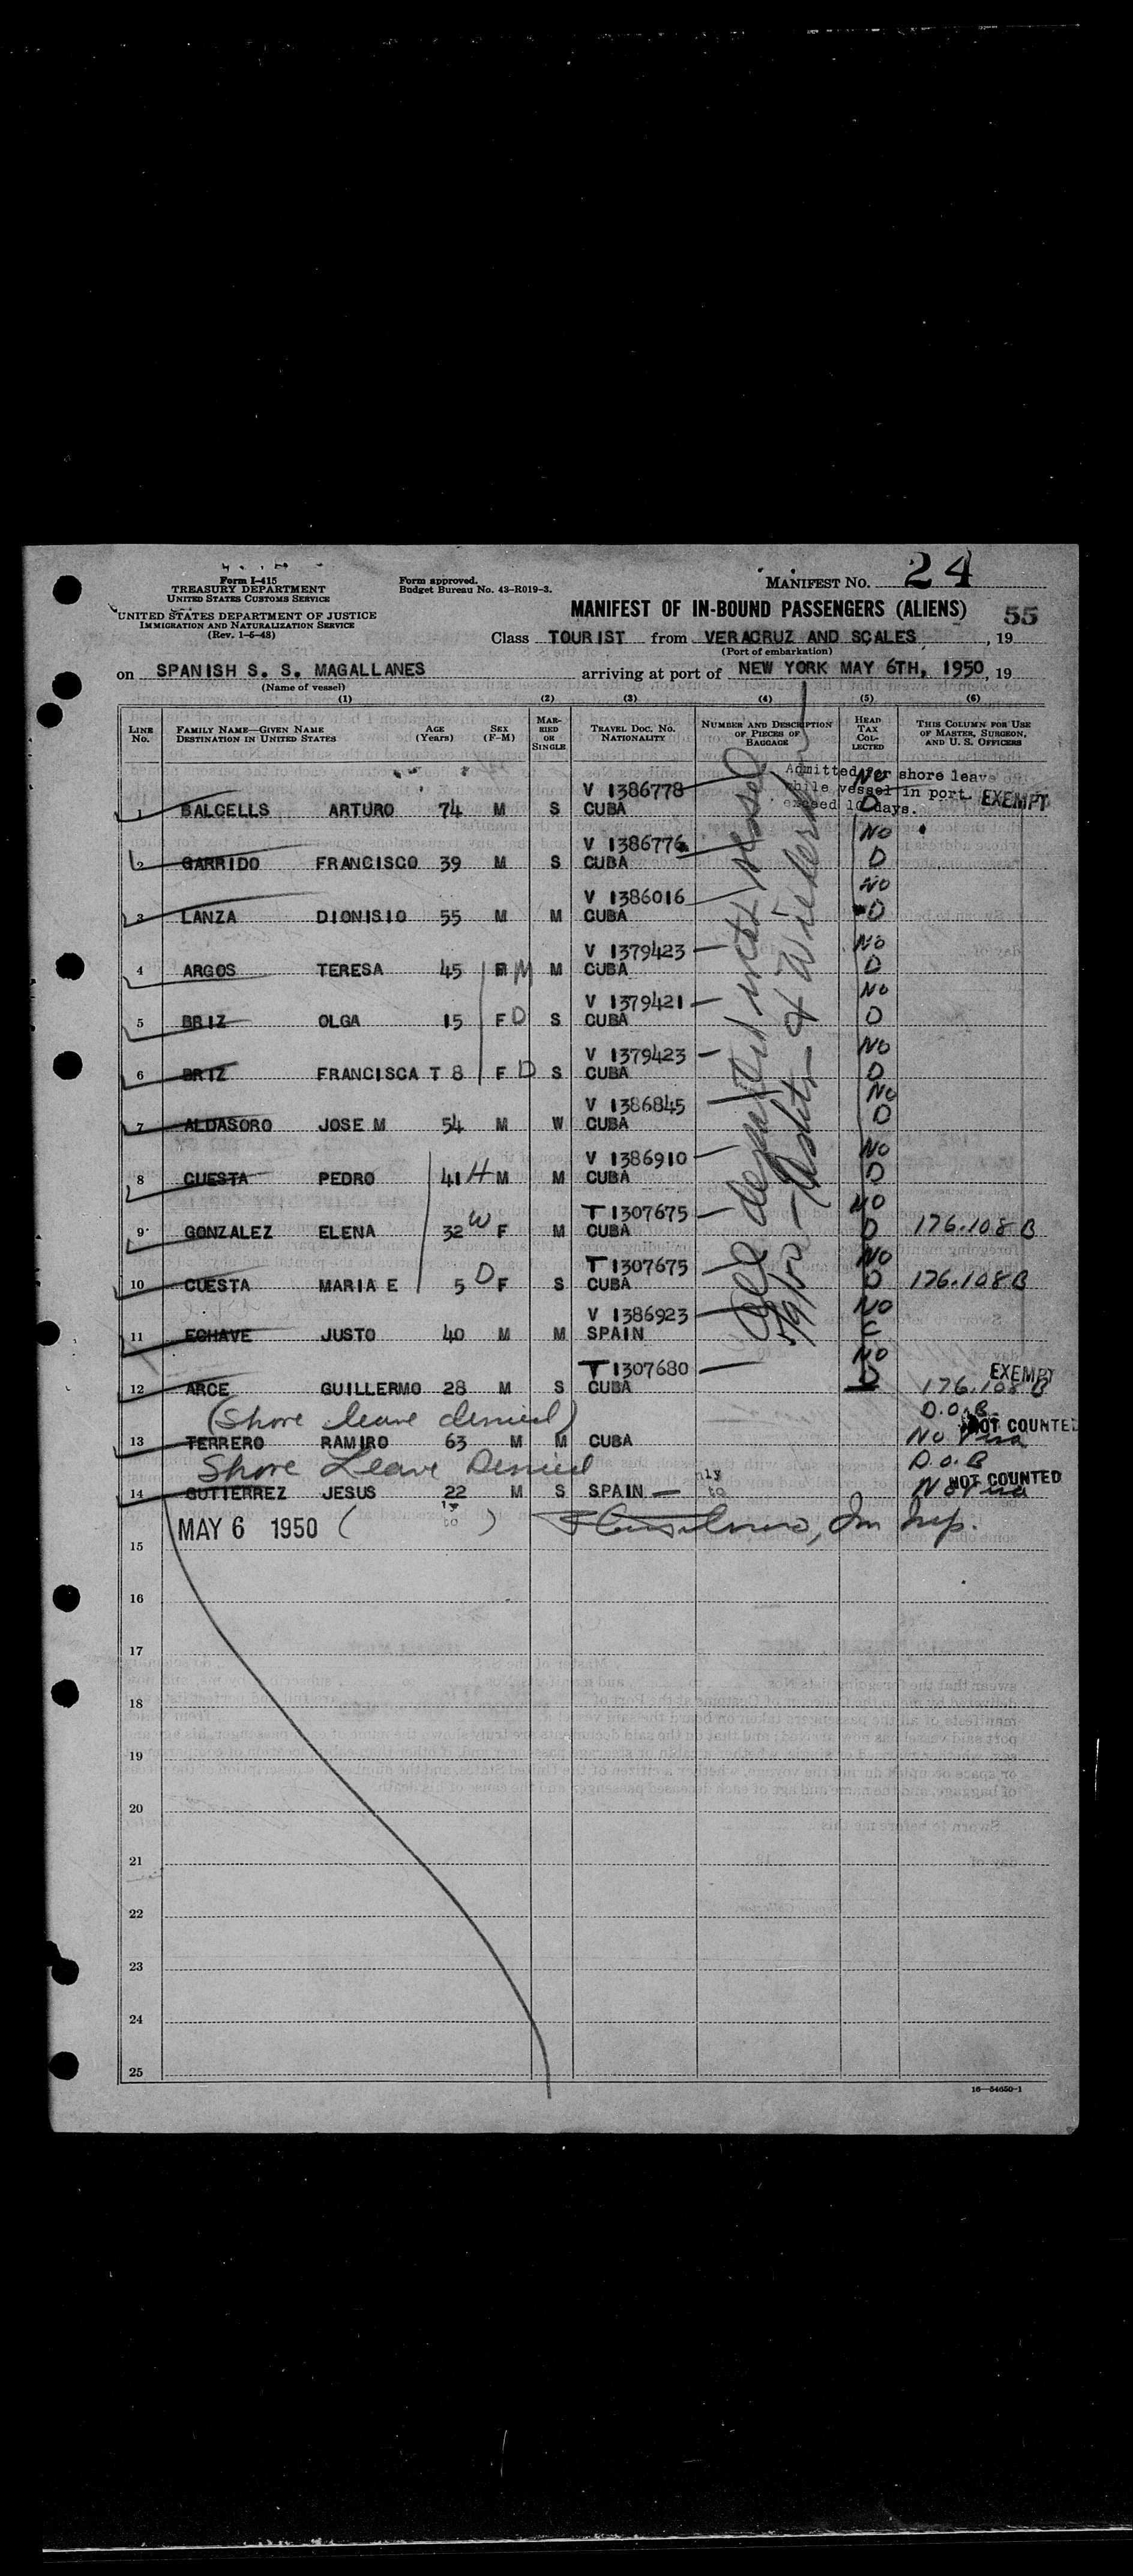 Form I-415
TREASURY DEPARTMENT
UNITED STATES CUSTOMS SERVICE
UNITED STATES DEPARTMENT OF JUSTICE
IMMIGRATION AND NATURALIZATION SERVICE
(Rev. 1-5-48)
Form approved.
Budget Bureau No. 43-R019-3.
MANIFEST NO. 24
MANIFEST OF IN-BOUND PASSENGERS (ALIENS) 55
Class TOURIST from VERACRUZ AND SCALES, 19
(Port of embarkation)
on SPANISH S. S. MAGALLANES arriving at port of NEW YORK MAY 6TH, 1950, 19
(Name of vessel)
(1) (2) (3) (4) (5) (6)
LINE NO. FAMILY NAME—GIVEN NAME DESTINATION IN UNITED STATES AGE (Years) SEX (F-M) MARRIED OR SINGLE TRAVEL DOC. NO. NATIONALITY NUMBER AND DESCRIPTION OF PIECES OF BAGGAGE HEAD TAX COLLECTED THIS COLUMN FOR USE OF MASTER, SURGEON, AND U. S. OFFICERS
Admitted for shore leave
while vessel in port.
exceed 10 days. EXEMPT
V 1386778 No
1 BALCELLS ARTURO 74 M S CUBA D
V 1386776 No
2 GARRIDO FRANCISCO 39 M S CUBA D
V 1386016 No
3 LANZA DIONISIO 55 M M CUBA D
V 1379423 No
4 ARGOS TERESA 45 F M M CUBA D
V 1379421 No
5 BRIZ OLGA 15 F D S CUBA D
V 1379423 No
6 BRIZ FRANCISCA T 8 F D S CUBA D
V 1386845 No
7 ALDASORO JOSE M 54 M W CUBA D
V 1386910 No
8 CUESTA PEDRO 41 H M M CUBA D
T 1307675 No
9 GONZALEZ ELENA 32 W F M CUBA D 176.108 B
T 1307675 No
10 CUESTA MARIA E 5 D F S CUBA D 176.108 B
V 1386923 No
11 ECHAVE JUSTO 40 M M SPAIN C
T 1307680 No EXEMPT
12 ARCE GUILLERMO 28 M S CUBA D 176.108 B
All departed with vessel
5/9/50
(Shore leave denied) D.O.B.
NOT COUNTED
13 TERRERO RAMIRO 63 M M CUBA No Visa
Shore Leave Denied D.O.B
NOT COUNTED
14 GUTIERREZ JESUS 22 M S SPAIN No Visa
MAY 6 1950 ( to ) Im Insp.
15
16
17
18
19
20
21
22
23
24
25
16—54650-1